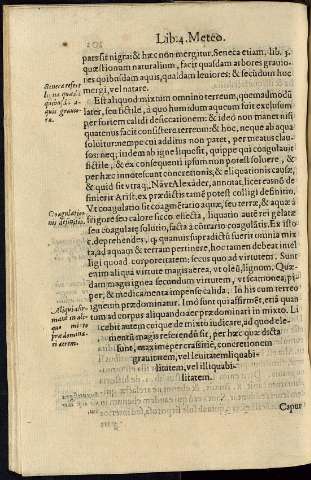 Lib. 4. Meteo.
pars sit nigra: & hæc non mergitur. Seneca etiam, lib. 3.
quæstionum naturalium, facit quasdam arbores grauio-
res quibusdam aquis, quasdam leuiores; & secundum huc
mergi, vel natare.
Est aliquod mixtum omnino terreum, quemadmodũ
later, seu fictile, à quo humidum aqueum fuit exclusum
per fortem calidi desiccationem: & ideò non manet nisi
quatenus facit consistere terreum: & hoc, neque ab aqua
solui
tur nempe cui additus non patet, per meatus clau-
sos: neq; indem ab igne liquescit, quippe qui coagulauit
fictile, & ex consequenti ipsum non potest soluere, &
per hæc innotescunt concretionis, & eliquationis causæ,
& quid sit vtraq;. Nã vt Alexãder, annotat, licet eas nõ de-
finierit Arist. ex prædictis tamẽ potest colligi definitio,
Vt coagulatio sit coagmẽtatio aquæ, seu terræ, & aquæ à
frigore seu calore sicco effecta, liquatio autẽ rei gelatæ
seu coagulatę solutio, facta à cõtrario coagulãtis. Ex isto
r. deprehendes, q. quamuis supradictũ fuerit omnia mix
ta, ad aquam & terram pertinere, hoc tamen debeat intel
ligi quoad corporeitatem: secus quo ad virtutem. Sunt
enim aliqua virtute magis aërea, vt oleũ, lignum. Quæ-
dam magis ignea secundum virtutem, vt synationea, pi-
per; & medicamenta impense calida. In his cum terreo
igneum prædominatur. Imò sunt qui affirmẽt, etiã quan
tum ad corpus aliquando aer prædominari in mixto. Li
cebit autem cuique de mixto iudicare, ad quod ele-
mentũ magis referendũ sit, per hæc quæ dicta
sunt, maxime per crassitiẽ, concretionem
grauitatem, vel leuitatem liquabi-
litatem, vel illiquabi-
litatem.
Seneca refert
aquis graui-
Coagulatio-
nis definitio.
Aliqui affir-
mant in ali-
quo mixto
prædomina-
ri aerem.
Caput